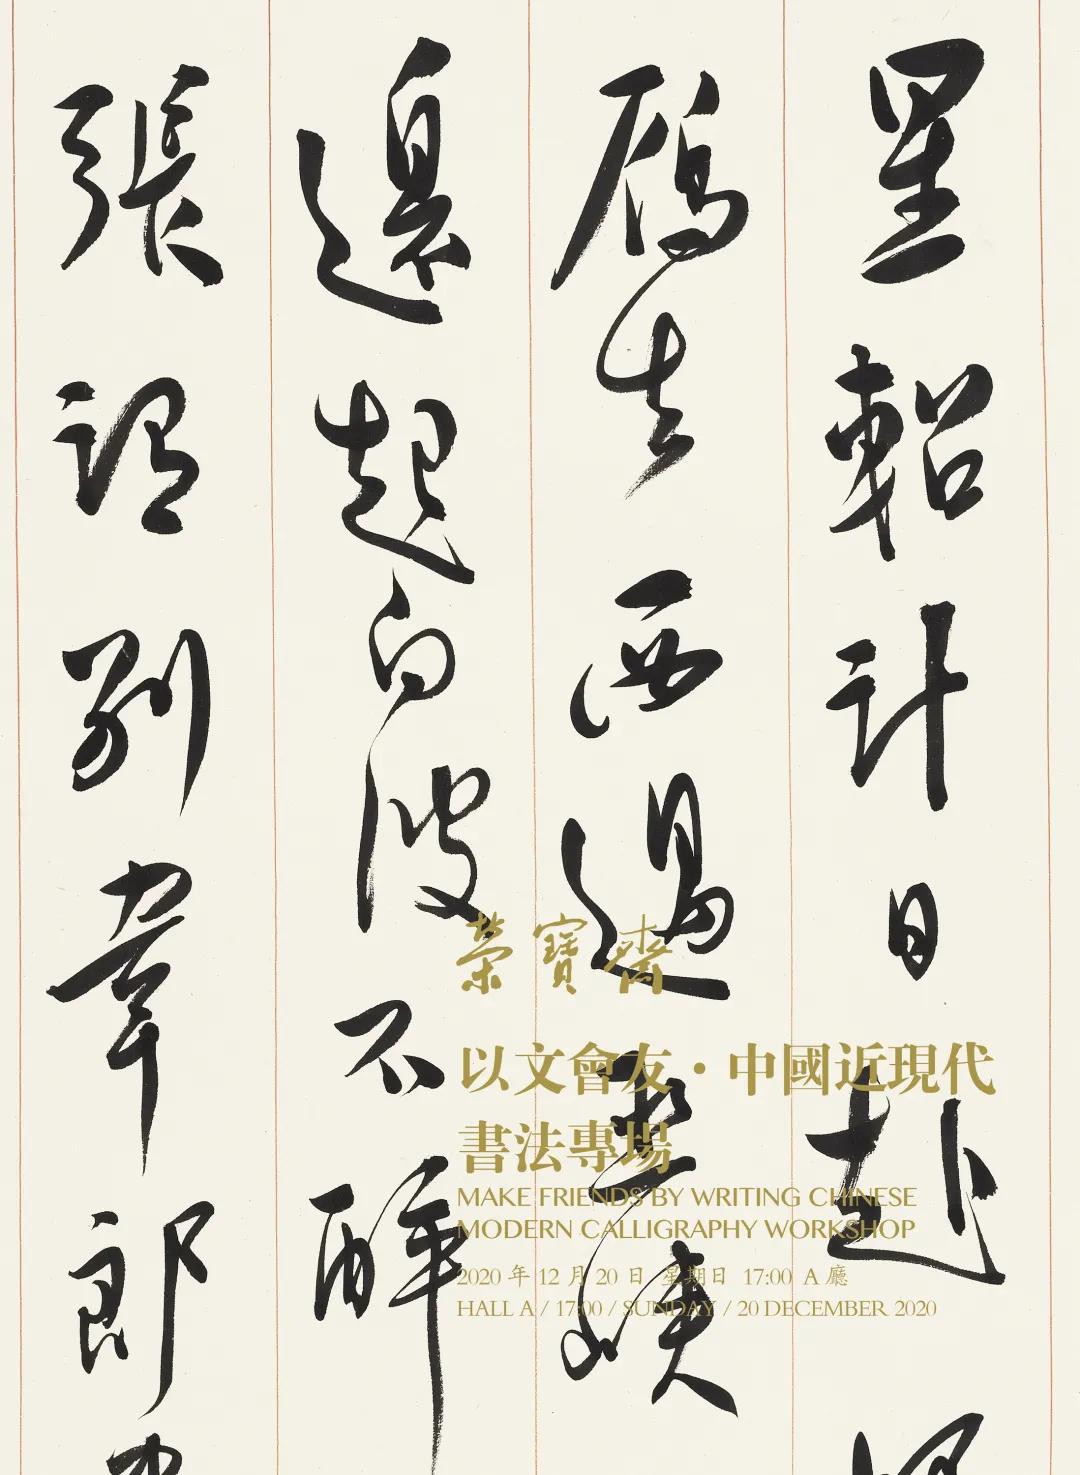 星軺計日赴岷
鴈去西過巫峽
邊起白波不醉
張謂別韋郎中
榮寶齋
以文會友·中國近現代
書法專場
MAKE FRIENDS BY WRITING CHINESE
MODERN CALLIGRAPHY WORKSHOP
2020 年 12 月 20 日 星期日 17:00 A 廳
HALL A / 17:00 / SUNDAY / 20 DECEMBER 2020